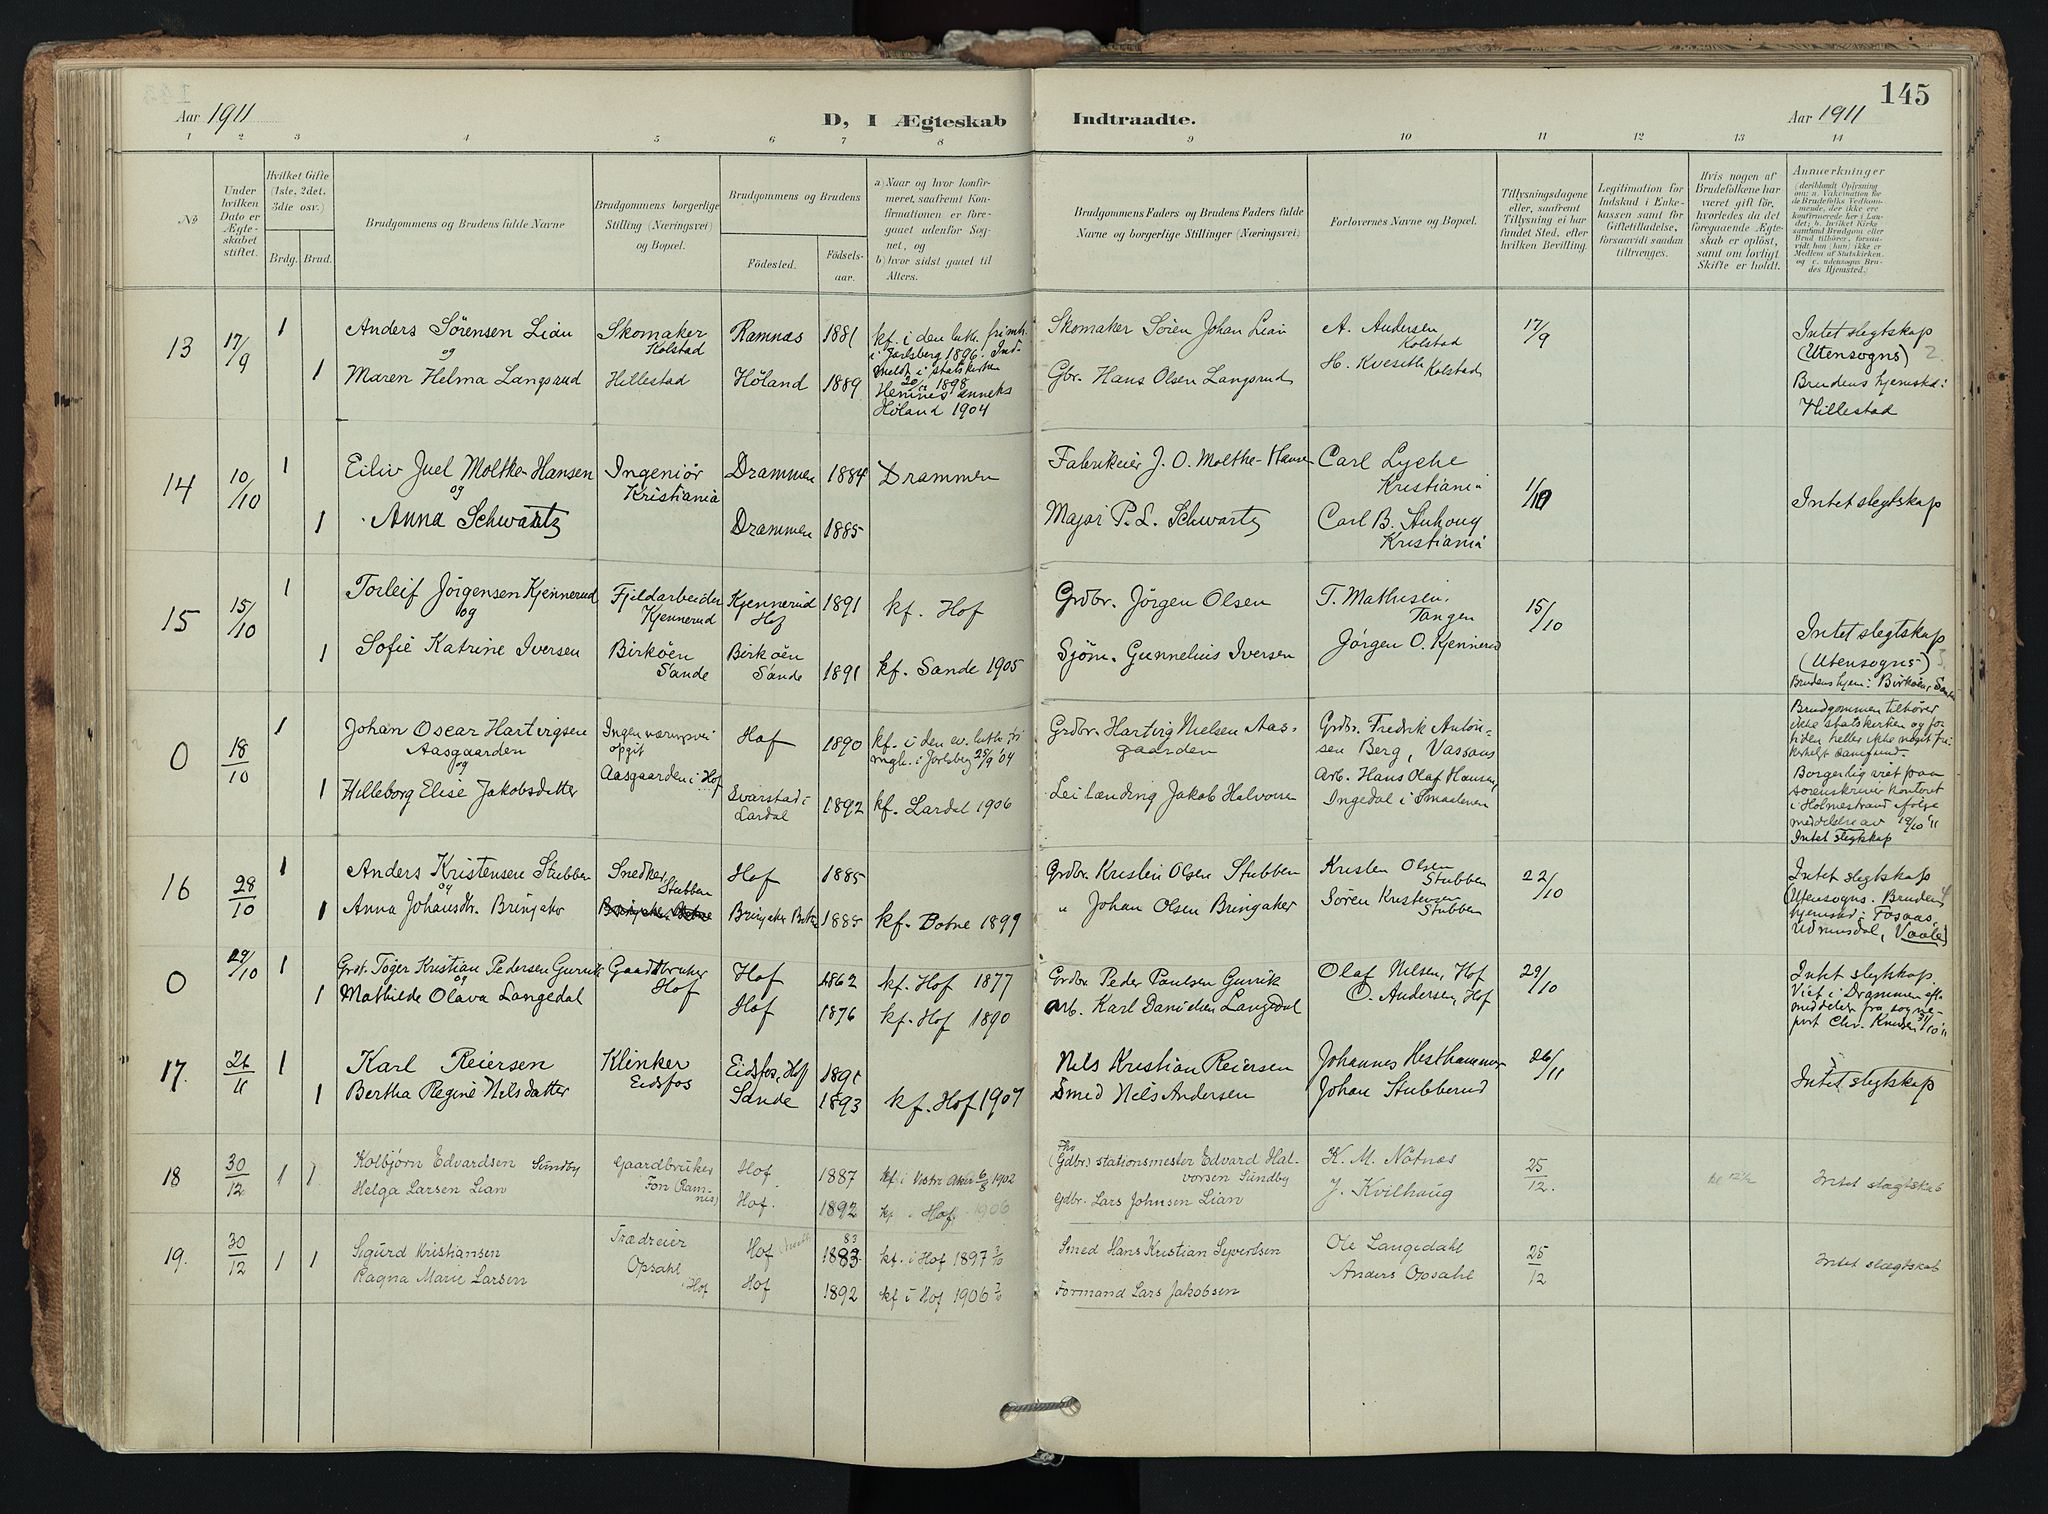 Aar 1911
D, I Ægteskab Indtraadte.
145
Aar 1911
1 2 3 4 5 6 7 8 9 10 11 12 13 14
No
Under hvilken Dato er Ægteskabet stiftet.
Hvilket Gifte (1ste, 2det, 3die osv.)
Brdg. Brud.
Brudgommens og Brudens fulde Navne
Brudgommens borgerlige Stilling (Næringsvei) og Bopæl.
Brudgommens og Brudens
Födested.
Födselsaar.
a) Naar og hvor konfirmeret, saafremt Konfirmationen er foregaaet udenfor Sognet, og
b) hvor sidst gaaet til Alters.
Brudgommens Faders og Brudens Faders fulde Navne og borgerlige Stillinger (Næringsvei)
Forlovernes Navne og Bopæl.
Tillysningsdagene eller, saafremt Tillysning ei har fundet Sted, efter hvilken Bevilling.
Legitimation for Indskud i Enkekassen samt for Giftetilladelse, forsaavidt saadan tiltrænges.
Hvis nogen af Brudefolkene har været gift för, hvorledes da det foregaaende Ægteskab er oplöst, samt om lovligt Skifte er holdt.
Anmærkninger
(deriblandt Oplysning om: a. Vakcination for de Brudefolks Vedkommende, der ikke ere konfirmerede her i Landet; b. hvilket Kirkesamfund Brudgom eller Brud tilhörer, forsaavidt han (hun) ikke er Medlem af Statskirken, og c. udensogns Brudes Hjemsted.)
13 17/9 1 Anders Sörensen Lian Skomaker Kolstad Ramnæs 1881 kf. i den luth. frimh. i Jarlsberg 1896. Indmeldt i statskirken 20/12 1898 Skomaker Sören Johan Lian A. Andersen Kolstad 17/9 Intet slegtskap
og
1 Maren Helma Langsrud Hillestad Höland 1889 Hemnes anneks Höland 1904 Gbr. Hans Olsen Langsrud H. Kveseth Kolstad (Utensogns) 2.
Brudens hjemstd: Hillestad
14 10/10 1 Eiliv Juel Moltke-Hansen Ingeniör Kristiania Drammen 1884 Drammen Fabrikeier J. O. Moltke-Hansen Carl Lyche Kristiania 1/10 Intet slegtskap
og
1 Anna Schwartz Drammen 1885 Major P. L. Schwartz Carl B. Kristiania
15 15/10 1 Torleif Jörgensen Kjennerud Fjeldarbeider Kjennerud Kjennerud Hof 1891 kf. Hof Grdbr. Jörgen Olsen T. Mathisen, Tangen 15/10 Intet slegtskap
og
1 Sofie Katrine Iversen Birköen Sande Birköen Sande 1891 kf. Sande 1905 Sjöm. Gunnelius Iversen Jörgen O. Kjennerud (Utensogns) 3.
Brudens hjem: Birköen, Sande
0 18/10 1 Johan Oscar Hartvigsen Aasgaarden Ingen næringsvei opgit Aasgaarden i Hof Hof 1890 kf. i den ev. luth. fri mgh. i Jarlsberg 25/9 '04 Grdbr. Hartvig Nielsen Aasgaarden Grdbr. Fredrik Antonsen Berg, Vassaas
og
1 Hilleborg Elise Jakobsdatter Svarstad i Lardal 1892 kf. Lardal 1906 Leilænding Jakob Halvorsen Arb. Hans Olaf Hansen, Ingedal i Smaalenene
Brudgommen tilhörer ikke statskirken og for tiden heller ikke noget frikirkeligt samfund.
Borgerlig viet paa sorenskriver kontoret i Holmestrand ifölge meddelelse av 19/10 '11
Intet slegtskap
16 28/10 1 Anders Kristensen Stubben Snedker Stubben Hof 1885 Grdbr. Kristen Olsen Stubben Kristen Olsen Stubben 22/10 Intet slegtskap
og
1 Anna Johansdtr. Bringaker Bringaker Botne 1885 kf. Botne 1899 " Johan Olsen Bringaker Sören Kristensen Stubben (Utensogns. Brudens 4 hjemstd: Fosaas, Udmundsdal, Vaale)
0 29/10 1 Töger Kristian Pedersen Gunrik Gaardbruker Hof Hof 1862 kf. Hof 1877 Grdbr. Peder Paulsen Gunrik Olaf Nilsen, Hof 29/10 Intet slegtskap.
og
1 Mathilde Olava Langedal Hof 1876 kf. Hof 1890 Arb. Karl Danielsen Langedal O. Andersen, Hof Viet i Drammen efter meddelse fra sogneprest Chr. Knudsen 31/10 '11
17. 26/11 1 Karl Reiersen Klinker Eidsfos Eidsfos, Hof 1891 Nils Kristian Reiersen Johannes Hesthammer 26/11 Intet slegtskap
1 Bertha Regine Nilsdatter Sande 1893 kf. Hof 1907 Smed Nils Andersen Johan Stubberud
18 30/12 1 1 Kolbjörn Edvardsen Sundby Gaardbruker Fon (Ramnes) Hof. 1887 kf. i Vestre Aker 6/8 1902 (Gdbr.) Stationsmester Edvard Halvorsen Sundby K. M. Nötnæs 25/12. Intet slægtskab
Helga Larsen Lian Hof. 1892 kf. i Hof 1906 Gdbr. Lars Johnsen Lian J. Kvilhaug
19. 30/12 1 1 Sigurd Kristiansen Trædreier Opsahl i Hof Hof 1883 83 kf. i Hof 1897 3/10 Smed Hans Kristian Syvertsen Ole Langedahl 25/12 Intet slægtskab
Ragna Marie Larsen Hof 1892 kf i Hof 1906 7/10 Formand Lars Jakobsen Anders Opsahl